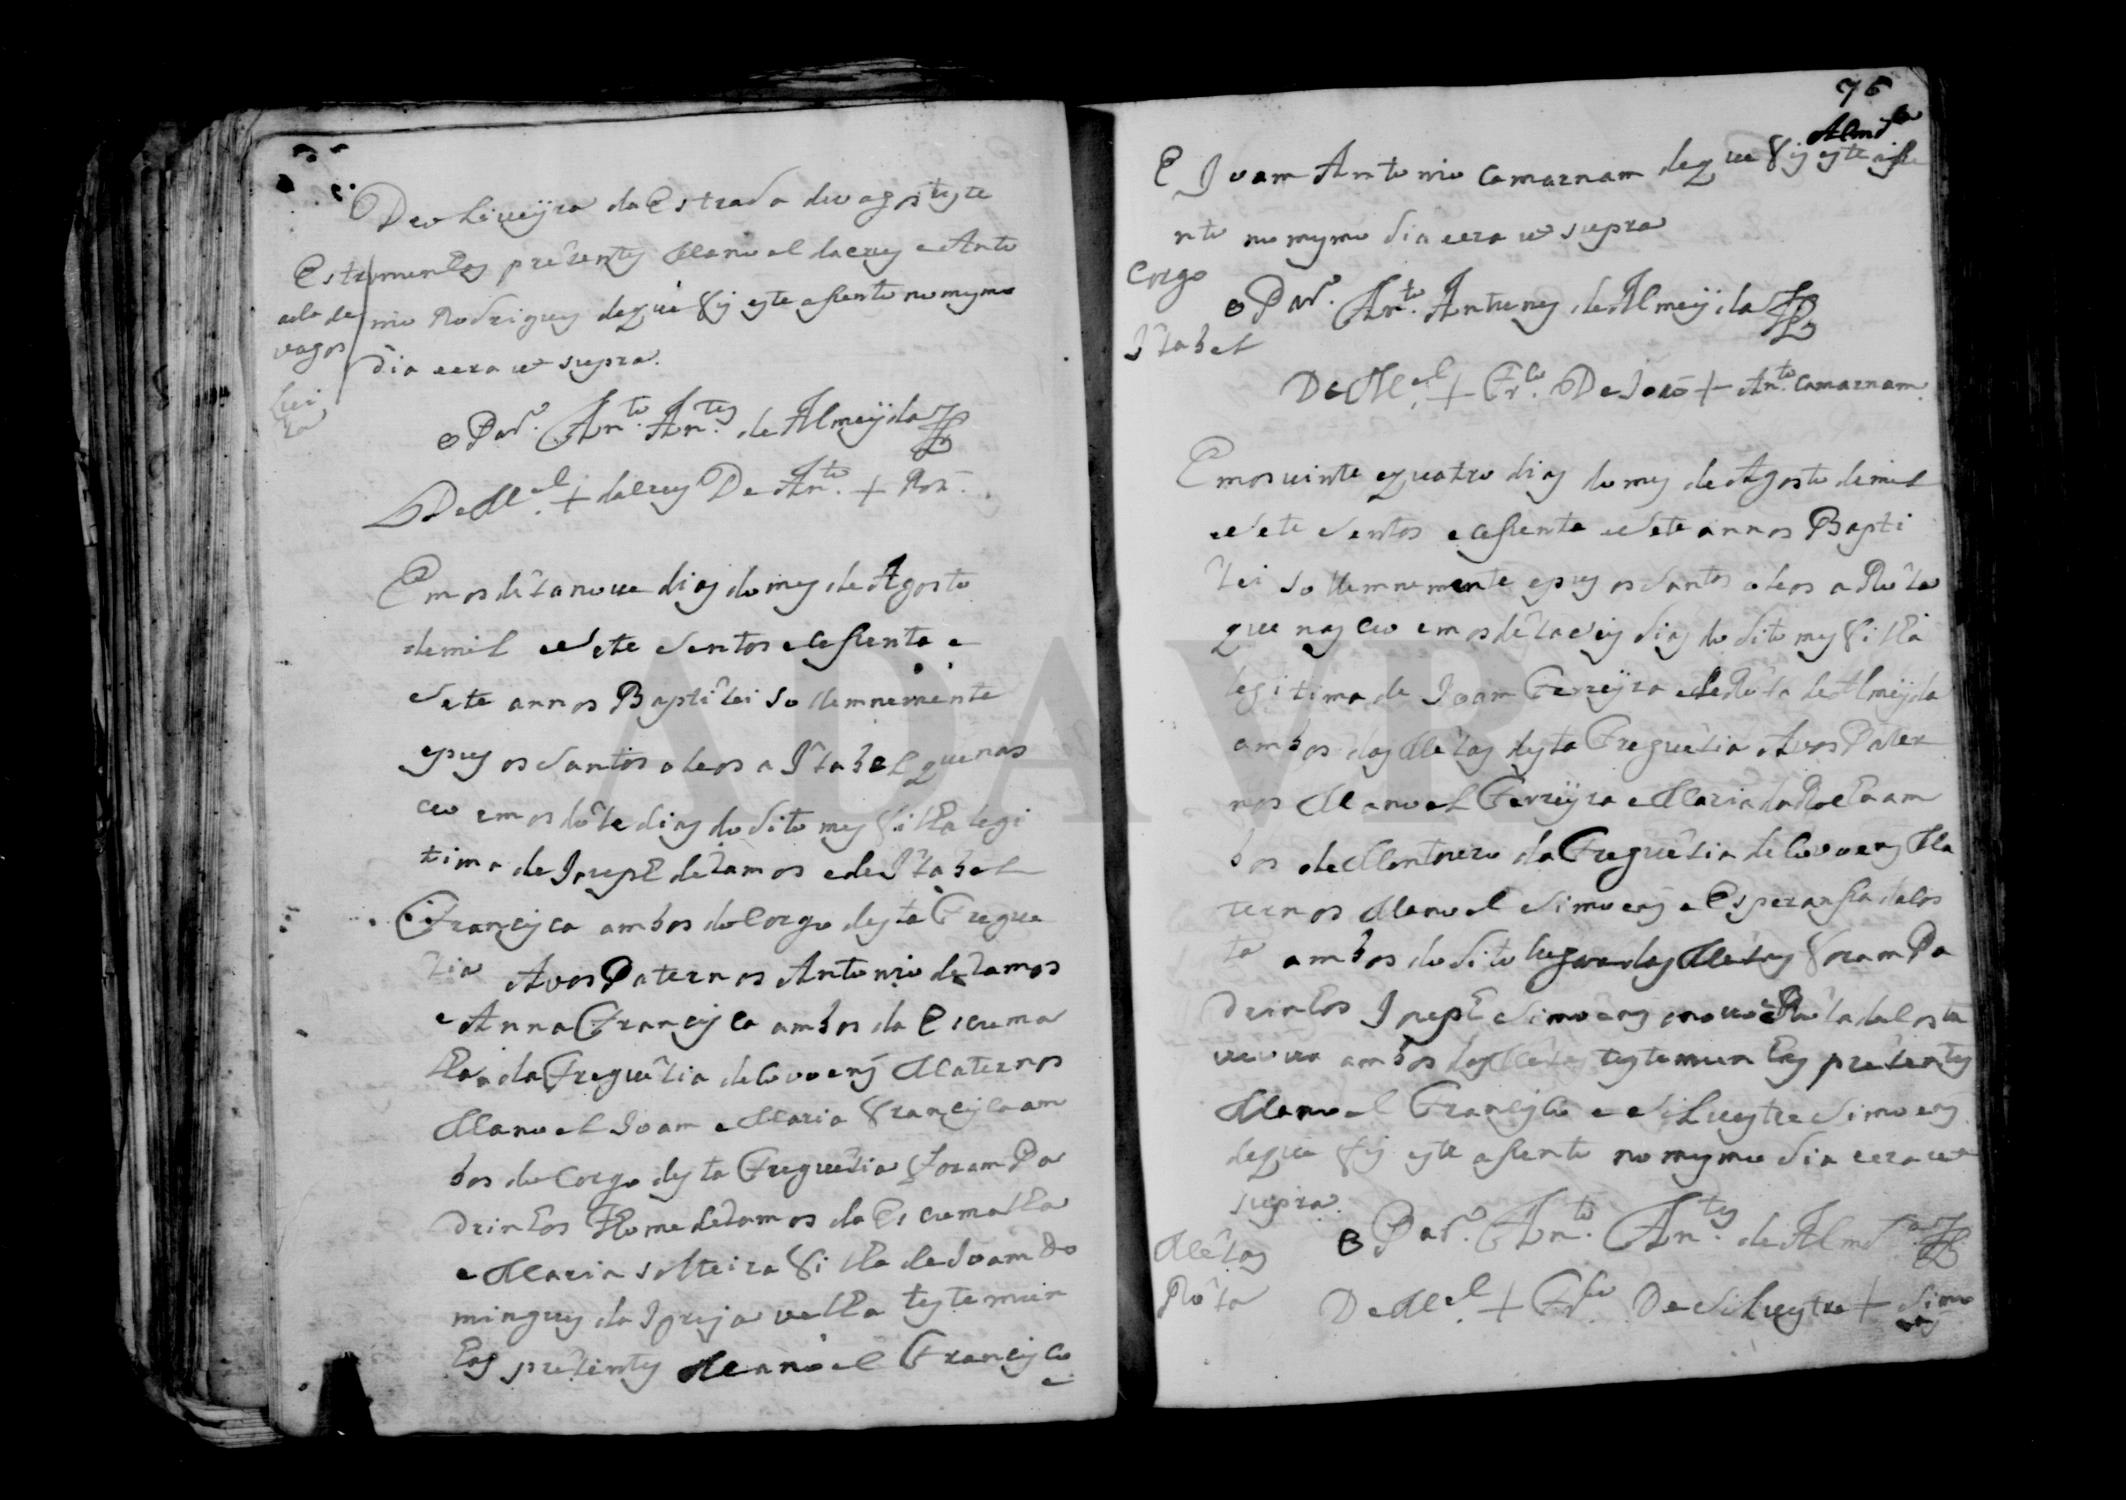 De oliueijra da Estrada de vagos teste
Estrumunhas prezentes Manoel da crus e Anto
ada de
vagos
nio Rodrigues de que fis este assento no mesmo
dia e era ut supra.
o Par.º An.to An.tes de Almeijda
De M.el + da crus De An.to + Roiz
Em os dezanoue dias do mes de Agosto
de mil e sete sentos e cessenta e
sete annos Baptizei sollemnemente
e pus os santos oleos a Izabel que nas
ceo em os doze dias do dito mes filha legi
tima de Joseph de Ramos e de Izabel
Francisca ambos do Corgo desta Fregue
zia Avos Paternos Antonio de Ramos
e Anna Francisca ambos da Escuma
lha da Freguezia de Covoens Maternos
Manoel Joam e Maria Francisca am
bos do Corgo desta Freguezia foram Pa
drinhos Thome de Ramos da Escumalha
e Maria solteira filha de Joam Do
mingues da Igreja velha testemun
has prezentes Manoel Francisco
e
76
Almd.a
E Joam Antonio Camarnam de que fis este asse
nto no mesmo dia e era ut supra
Corgo
Izabel
o Par.º An.to Antunes de Almeijda
De M.el + Fr.co De Joaõ + An.to Camarnam
Em os vinte e quatro dias do mes de Agosto de mil
e sete sentos e cessenta e sete annos Bapti
zei sollemnemente e pus os santos oleos a Roza
que nasceo em os dezaseis dias do dito mes filha
legitima de Joam Ferreijra e de Roza de Almeijda
ambos das Mezas desta Freguezia Avos Pater
nos Manoel Ferreijra e Maria da Rocha am
bos de Montouro da Freguezia de Covoens Ma
ternos Manoel Simoens e Esperansa da Cos
ta ambos do dito lugar das Mezas foram Pa
drinhos Joseph Simoens e Roza da Costa
viuva ambos das Mezas testemunhas prezentes
Manoel Francisco e Siluestre Simoens
de que fis este assento no mesmo dia e era ut
supra.
Mezas
Roza
o Par.º An.to An.tes de Almd.a
De M.el + Fr.co De Siluestre + Simo
ens
ADAVR